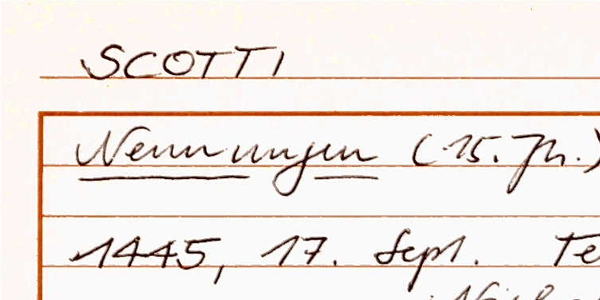 SCOTTI
Nennungen (15. Jh.)
1445, 17. Sept. Te